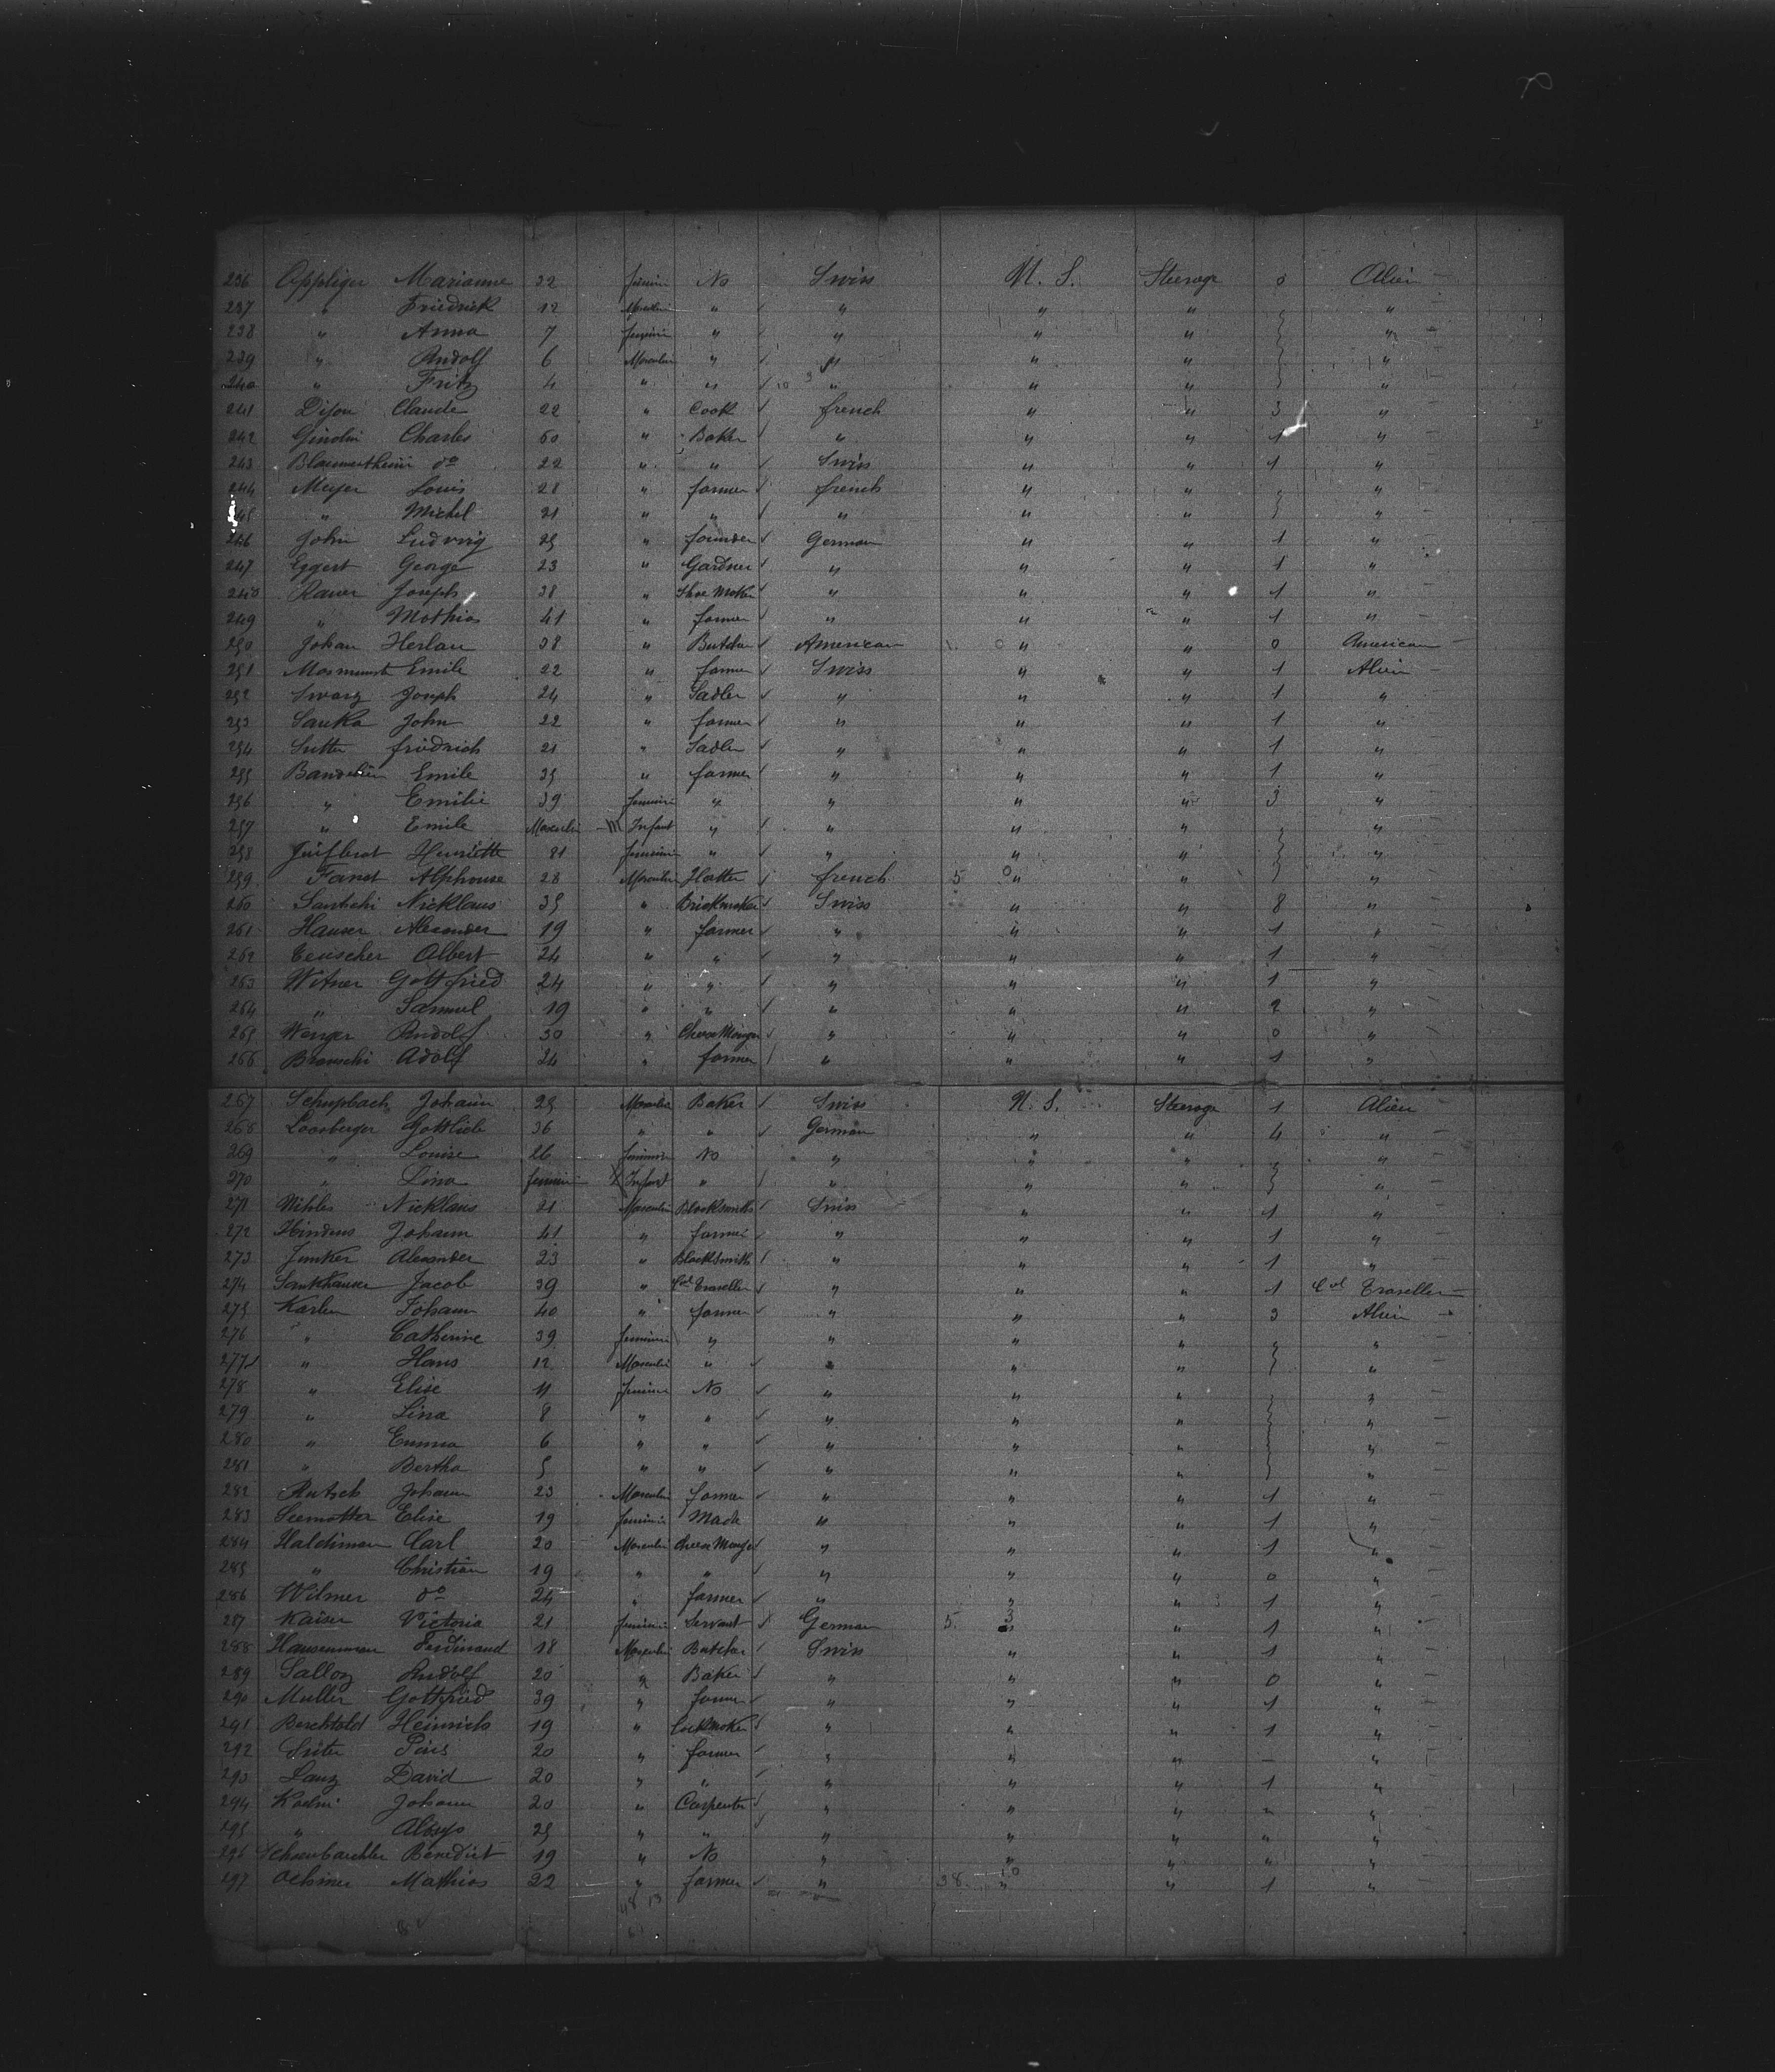 236 Appliger Marianne 32 feminin No Swiss U. S. Steerage 0 Alien
237 " Friedrick 12 Masculin " " " " "
238 " Anna 7 feminin " " " " "
239 " Rudolf 6 Masculin " " " " "
240 " Fritz 4 " " " " " "
241 Dijon Claude 22 " Cook french " " 3 "
242 Ginolin Charles 60 " Baker " " " 1 "
243 do 22 " " Swiss " " 1 "
244 Meyer Louis 28 " farmer french " " "
245 " Michel 21 " " " " " "
246 John Ludwig 25 " founder German " " 1 "
247 Eggert George 23 " Gardner " " " 1 "
248 Rauer Joseph 38 " Shoe Maker " " " 1 "
249 " Mathias 41 " farmer " " " 1 "
250 Johan Herlan 38 " Butcher American " " 0 American
251 Emile 22 " farmer Swiss " " 1 Alien
252 Swarz Joseph 24 " Sadler " " " 1 "
253 Sauka John 22 " farmer " " " 1 "
254 Sutter fridrich 21 " Sadler " " " 1 "
255 Bandelier Emile 35 " farmer " " " 1 "
256 " Emilie 39 feminin " " " " 3 "
257 " Emile Masculin M Infant " " " " "
258 Henriette 21 feminin " " " " "
259 Fanet Alphonse 28 Masculin Hatter french 5 0 " " "
260 Santschi Nicklaus 35 " Brickmaker Swiss " " 8 "
261 Hauser Alexander 19 " farmer " " " 1 "
262 Teuscher Albert 24 " " " " " 1 "
263 Witner Gottfried 24 " " " " " 1 "
264 " Samuel 19 " " " " " 2 "
265 Wenger Rudolf 30 " Cheese Monger " " " 0 "
266 Branschi Adolf 24 " farmer " " " 1 "
267 Schupbach Johann 25 Masculin Baker Swiss U. S. Steerage 1 Alien
268 Loosberger Gottlieb 36 " " German " " 4 "
269 " Louise 26 feminin No " " " "
270 " Lina feminin Infant " " " " "
271 Nihles Nicklaus 21 Masculin Blacksmith Swiss " " 1 "
272 Johann 41 " farmer " " " 1 "
273 Junker Alexander 23 " Blacksmith " " " 1 "
274 Sankhauser Jacob 39 " Col Traveller " " " 1 Col Traveller
275 Karlen Johann 40 " farmer " " " 3 Alien
276 " Catherine 39 feminin " " " " "
277 " Hans 12 Masculin " " " " "
278 " Elise 11 feminin No " " " "
279 " Lina 8 " " " " " "
280 " Emma 6 " " " " " "
281 " Bertha 5 " " " " " "
282 Rutsch Johann 23 Masculin farmer " " " 1 "
283 Seematter Elise 19 feminin " " " 1 "
284 Haldiman Carl 20 Masculin Cheese Monger " " " 1 "
285 " Christian 19 " " " " " 0 "
286 Wilmer do 24 " farmer " " " 1 "
287 Kaiser Victoria 21 feminin Servant German 5 3 " " 1 "
288 Hausenman Ferdinand 18 Masculin Butcher Swiss " " 1 "
289 Salloz Rudolf 20 " Baker " " " 0 "
290 Muller Gottfried 39 " farmer " " " 1 "
291 Berchtold Heinrich 19 " Lockmaker " " " 1 "
292 Suter Pius 20 " farmer " " " – "
293 Lanz David 20 " " " " " 1 "
294 Kaelni Johann 20 " Carpenter " " " " "
295 " Aloys 25 " " " " " " "
296 Benedict 19 " No " " " " "
297 Mathias 22 " farmer " 38 10 " " 1 "
48 13
61